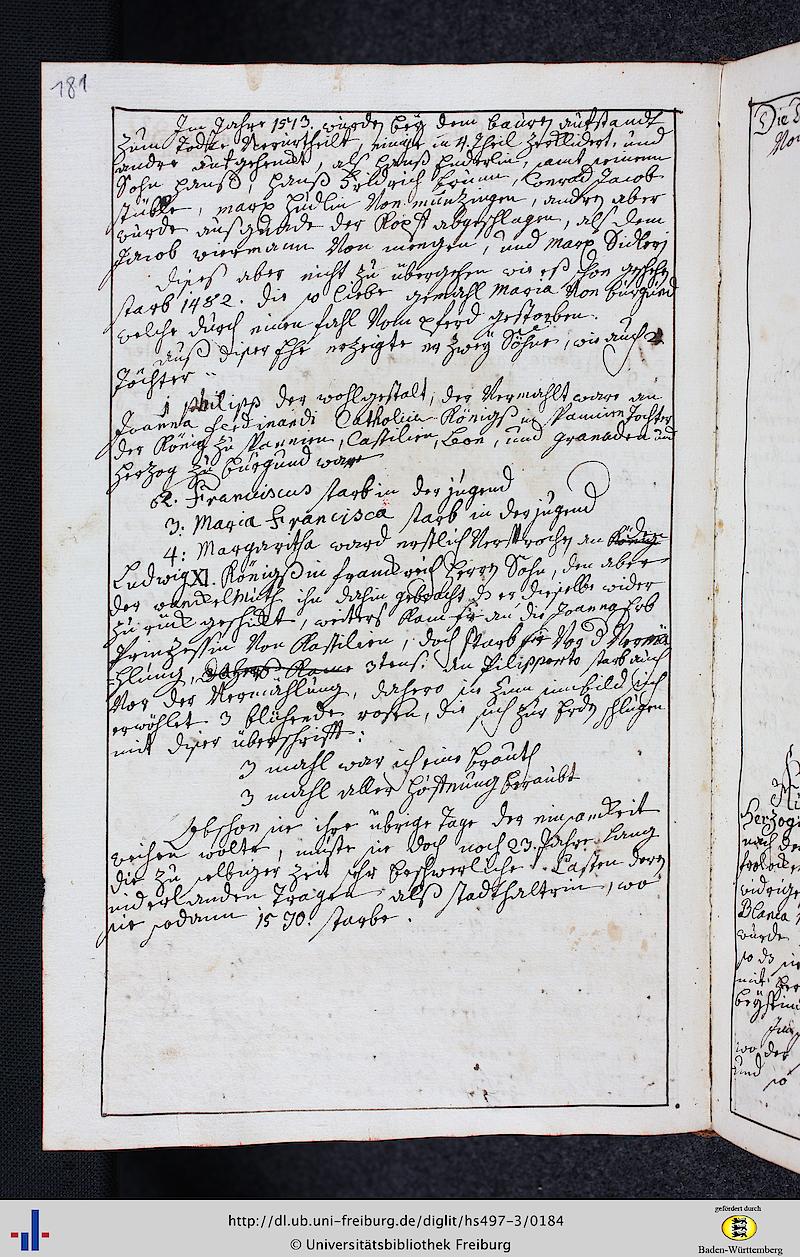 181
Im Jahre 1513. wurden bey dem bauren aufstandt
zum Todte Verurtheilt, einige in 4. Theil zergliedert, und
andre aufgehenckt, als Hanß Enderlin, samt seinem
Sohn Hanß, Hanß Fridrich, Conrad Jacob
stüble, Marx Hüdlin Von Müntzingen, andren aber
wurde auß gnade der Kopf abgeschlagen, als dem
Jacob Wiermann Von Mengen, und Marx
dises aber nicht zu übergehen wie eß
starb 1482. die so liebe gemahl Maria Von burgund
welche durch einen fahl Vom pferd gestorben.
auß diser Ehe erzeigte er zwey Söhne, wie auch 2
Töchter
1 Philipp der wohlgestalt, der Vermählt ware an
Joanna Ferdinandi Catholici Königs in Spanien Tochter
der König zu Spanien, Castilien, Leon, und Granaden und
Herzog zu burgund ware
2. Franciscus starb in der jugend
3. Maria Francisca starb in der jugend
4: Margaritha ward erstlich Versprochen an
Ludwig XI. Königs in franckreich Herrn Sohn, den aber
der wanckelmuth ihn dahin gebracht, ds er dieselbe wider
zu rück geschickt, weiters kam sie an die Joanna
Prinzessin Von Kastilien, doch starb Vor d Vermä
hlung, 3tens: an Filipperto starb auch
Vor der Vermählung, dahero sie zum sinnbild sich
erwöhlet 3 blühende rosen, die sich zur Erden schlugen
mit diser überschrift:
3 mahl war ich eine brauth
3 mahl aller Hoffnung beraubt
Obschon sie ihre übrige Tage der einsamkeit
weihen wolte, muste sie doch noch 23. Jahre lang
die zu selbiger zeit sehr beschwerliche Lasten deren
niderlanden tragen alß stadthaltrin, wo
sie sodann 1530. starbe.
Die
Herzogi
nach de
widrige
Blanca
wurde
so ds sie
mit
wo der
und
so
http://dl.ub.uni-freiburg.de/diglit/hs497-3/0184
© Universitätsbibliothek Freiburg
gefördert durch
Baden-Württemberg